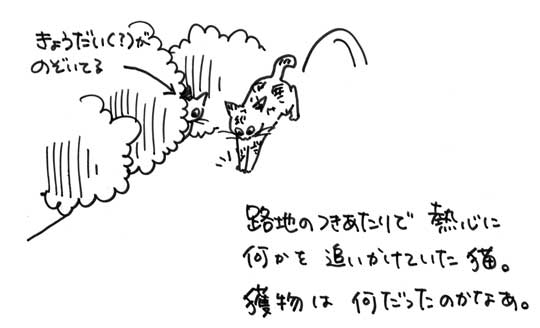 きょうだい(?)が
のぞいてる
路地のつきあたりで 熱心に
何かを 追いかけていた 猫。
獲物は 何だったのかなあ。